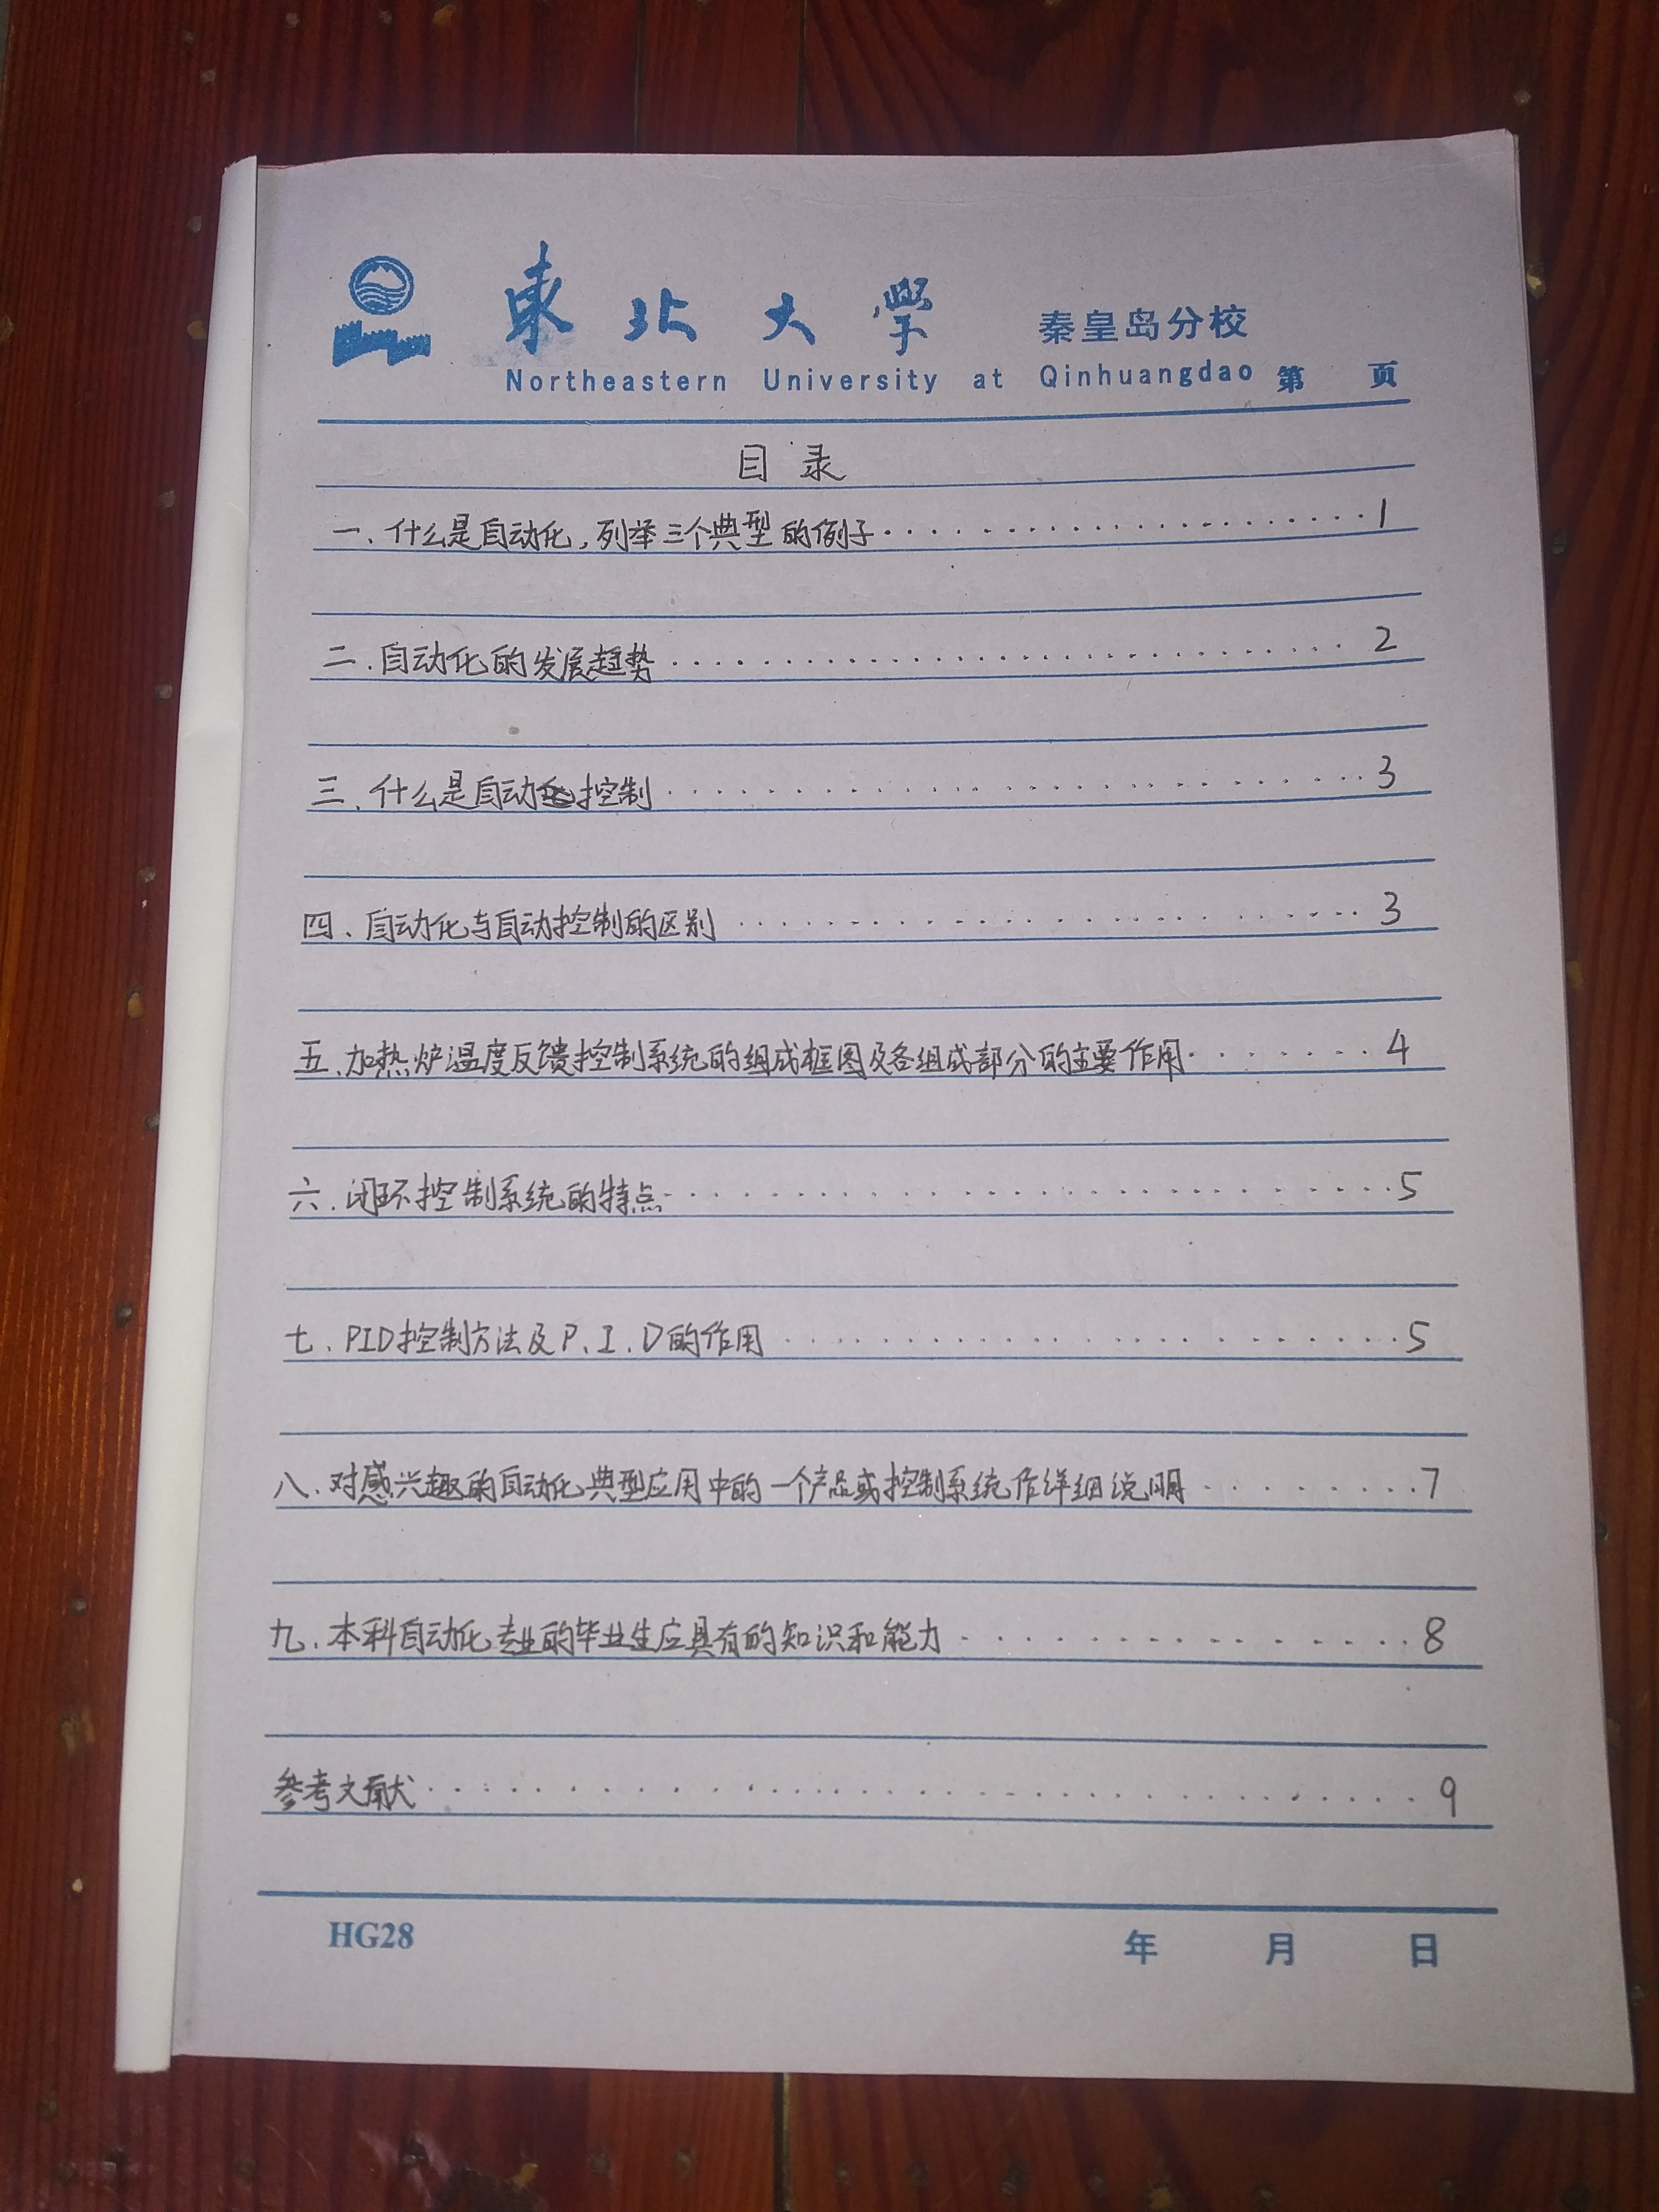 東北大學 秦皇岛分校
Northeastern University at Qinhuangdao 第 页
目录
一、什么是自动化,列举三个典型的例子·································1
二.自动化的发展趋势·································2
三、什么是自动控制·································3
四、自动化与自动控制的区别·································3
五、加热炉温度反馈控制系统的组成框图及各组成部分的主要作用········4
六.闭环控制系统的特点·································5
七.PID控制方法及P、I、D的作用·································5
八、对感兴趣的自动化典型应用中的一个产品或控制系统作详细说明········7
九、本科自动化专业的毕业生应具有的知识和能力···············8
参考文献·································9
HG28 年 月 日